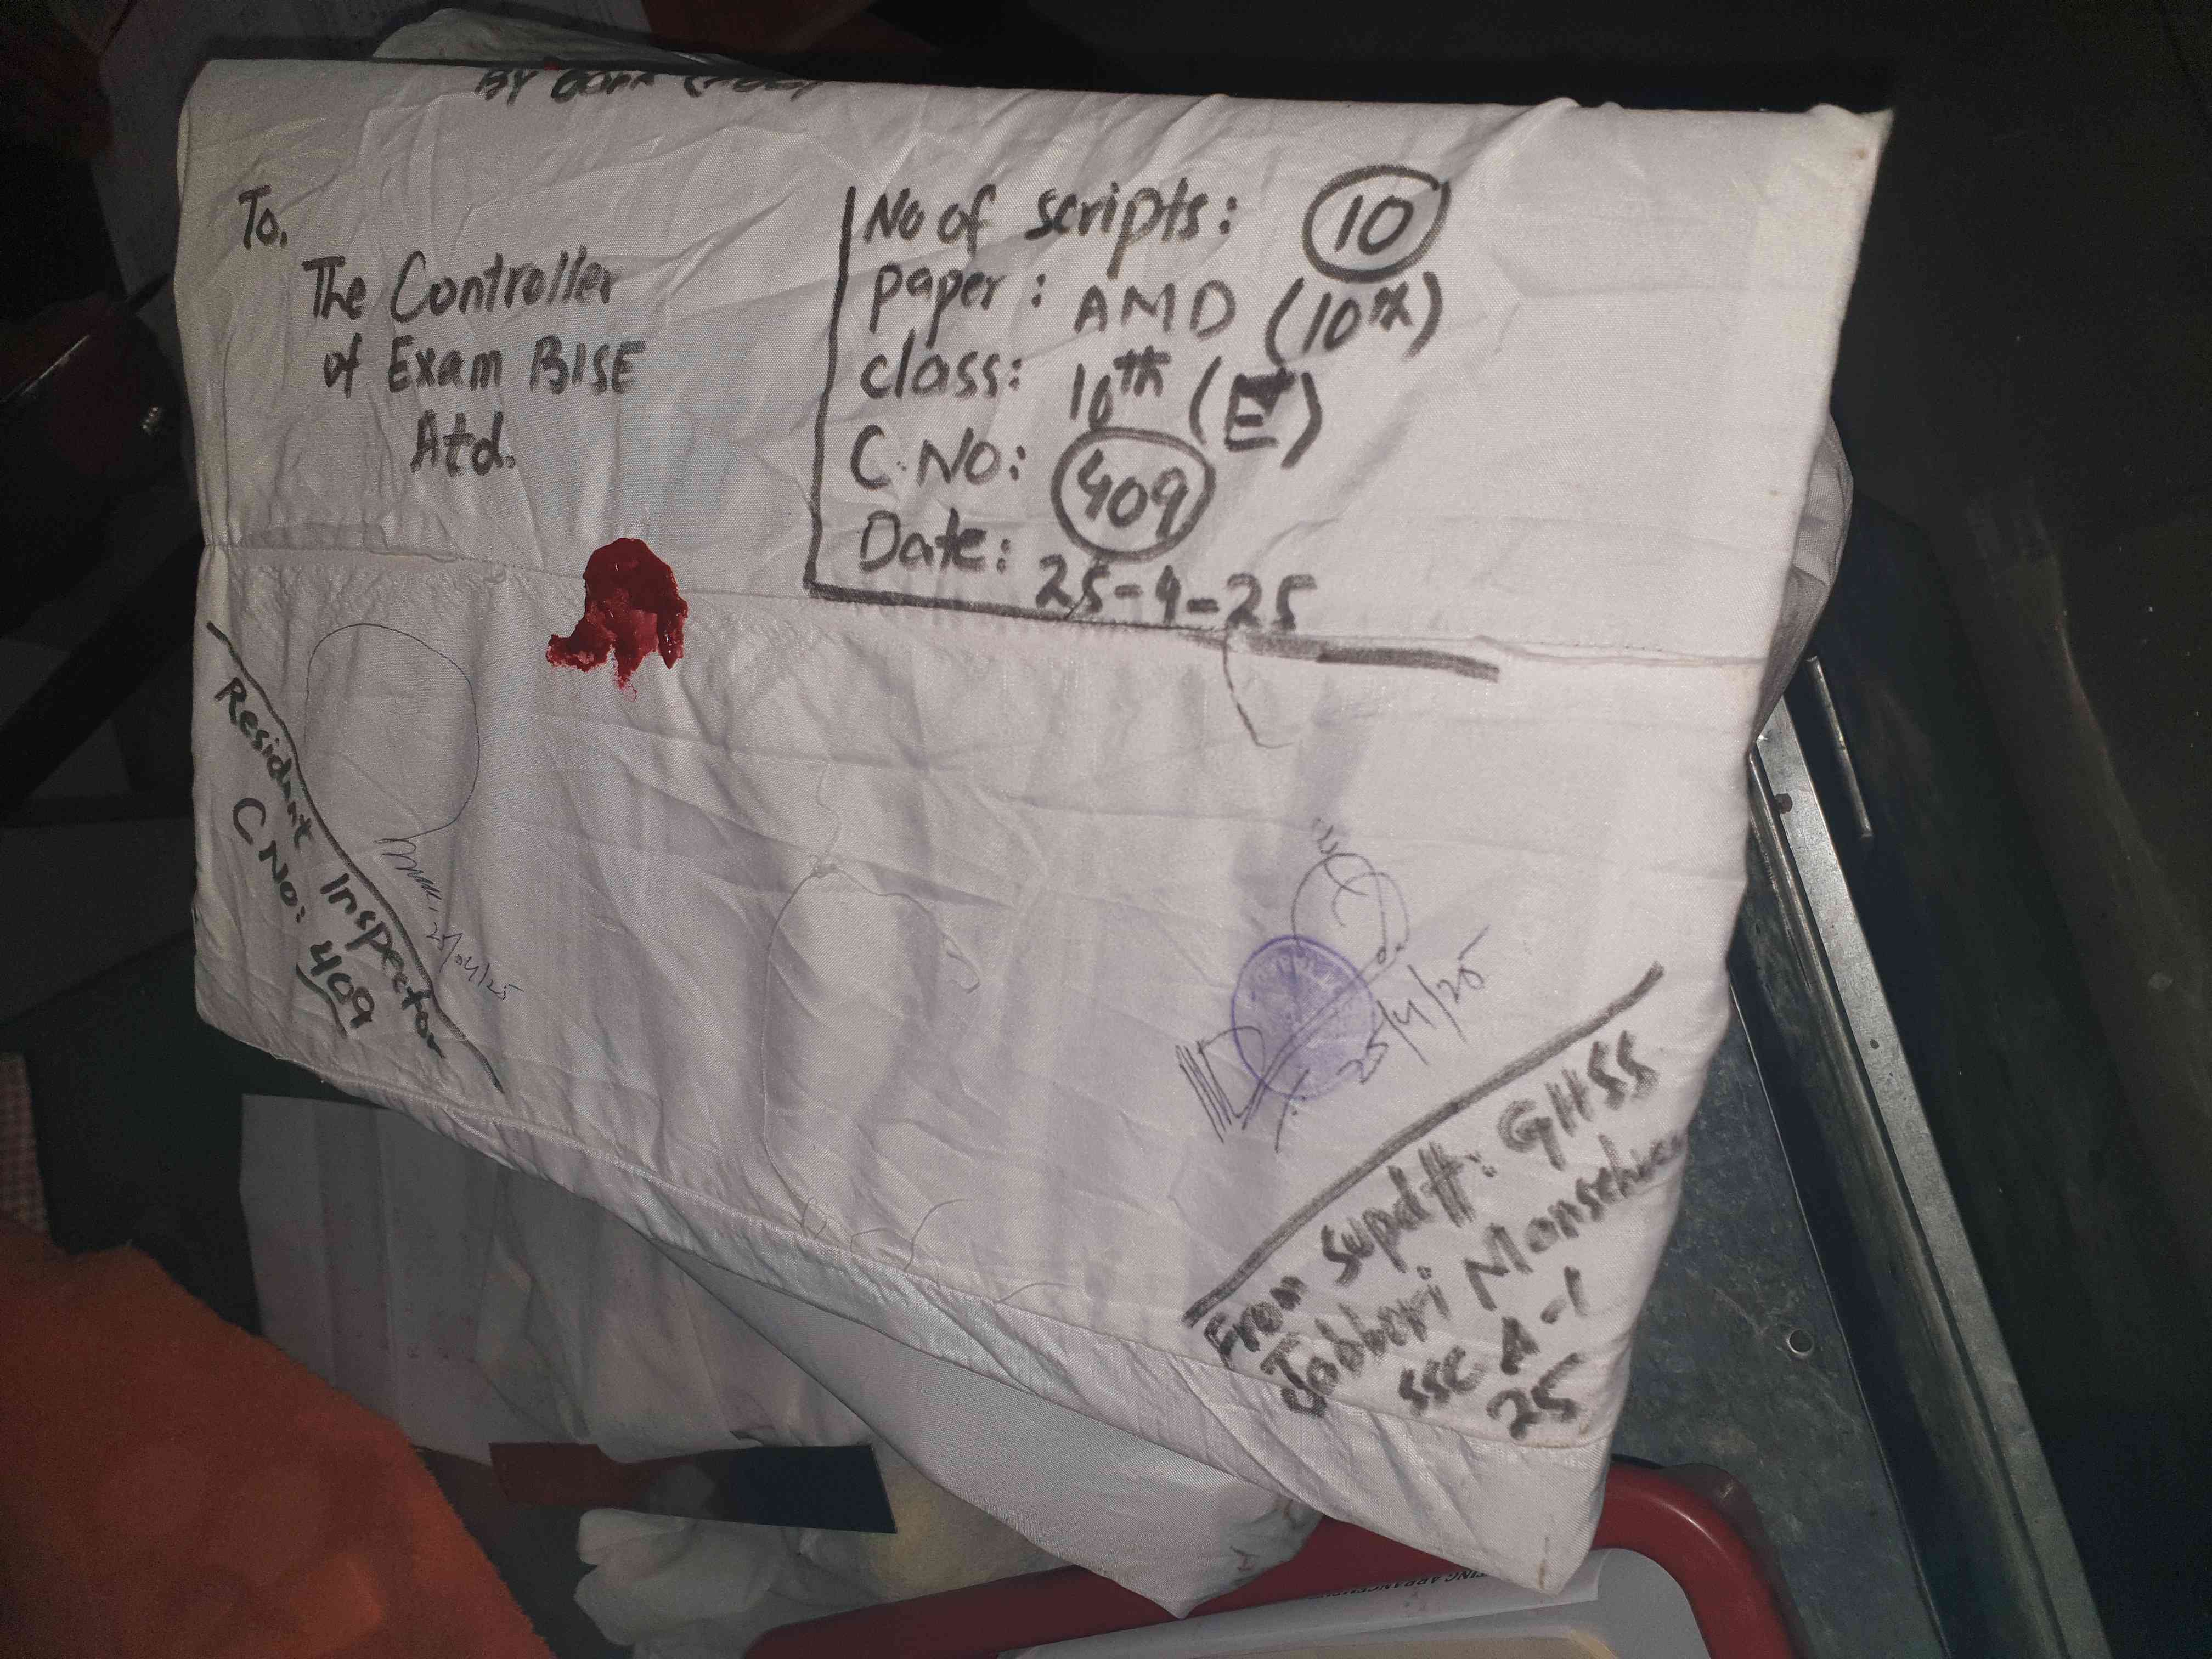 BY
To,
The Controller
of Exam BISE
Atd.
No of scripts: 10
paper: AMD (10th)
class: 10th (E)
C.No: 409
Date: 25-4-25
Residant Inspector
C No: 409
25/04/25
25/4/25
From Supdtt: GHSS
Jabbori Mansehra
SSC A-1
25